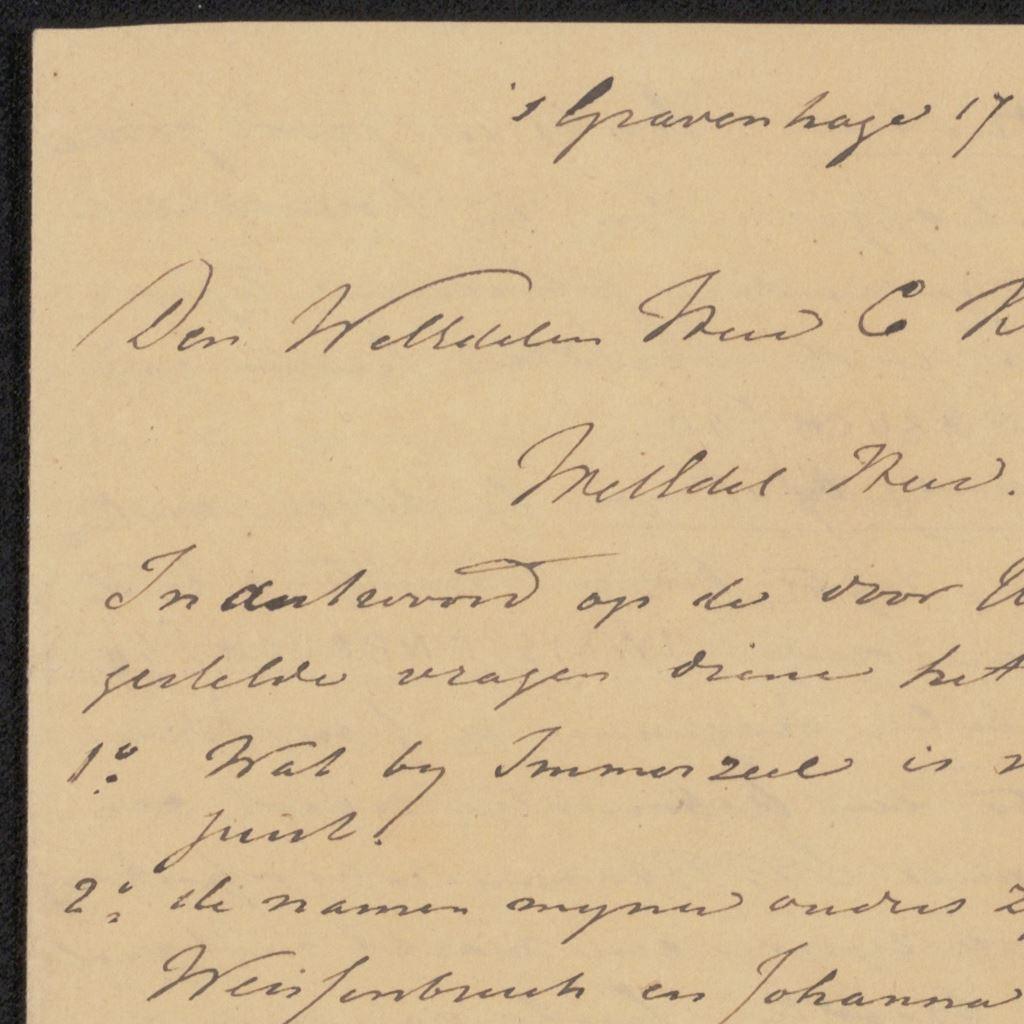 's Gravenhage 17
Den WelEdelen Heer C
WelEdel Heer.
In antwoord op de door
gestelde vragen diene het
1º. Wat by Immerzeel is
juist.
2º. de namen myner ouders
Weissenbruch en Johanna